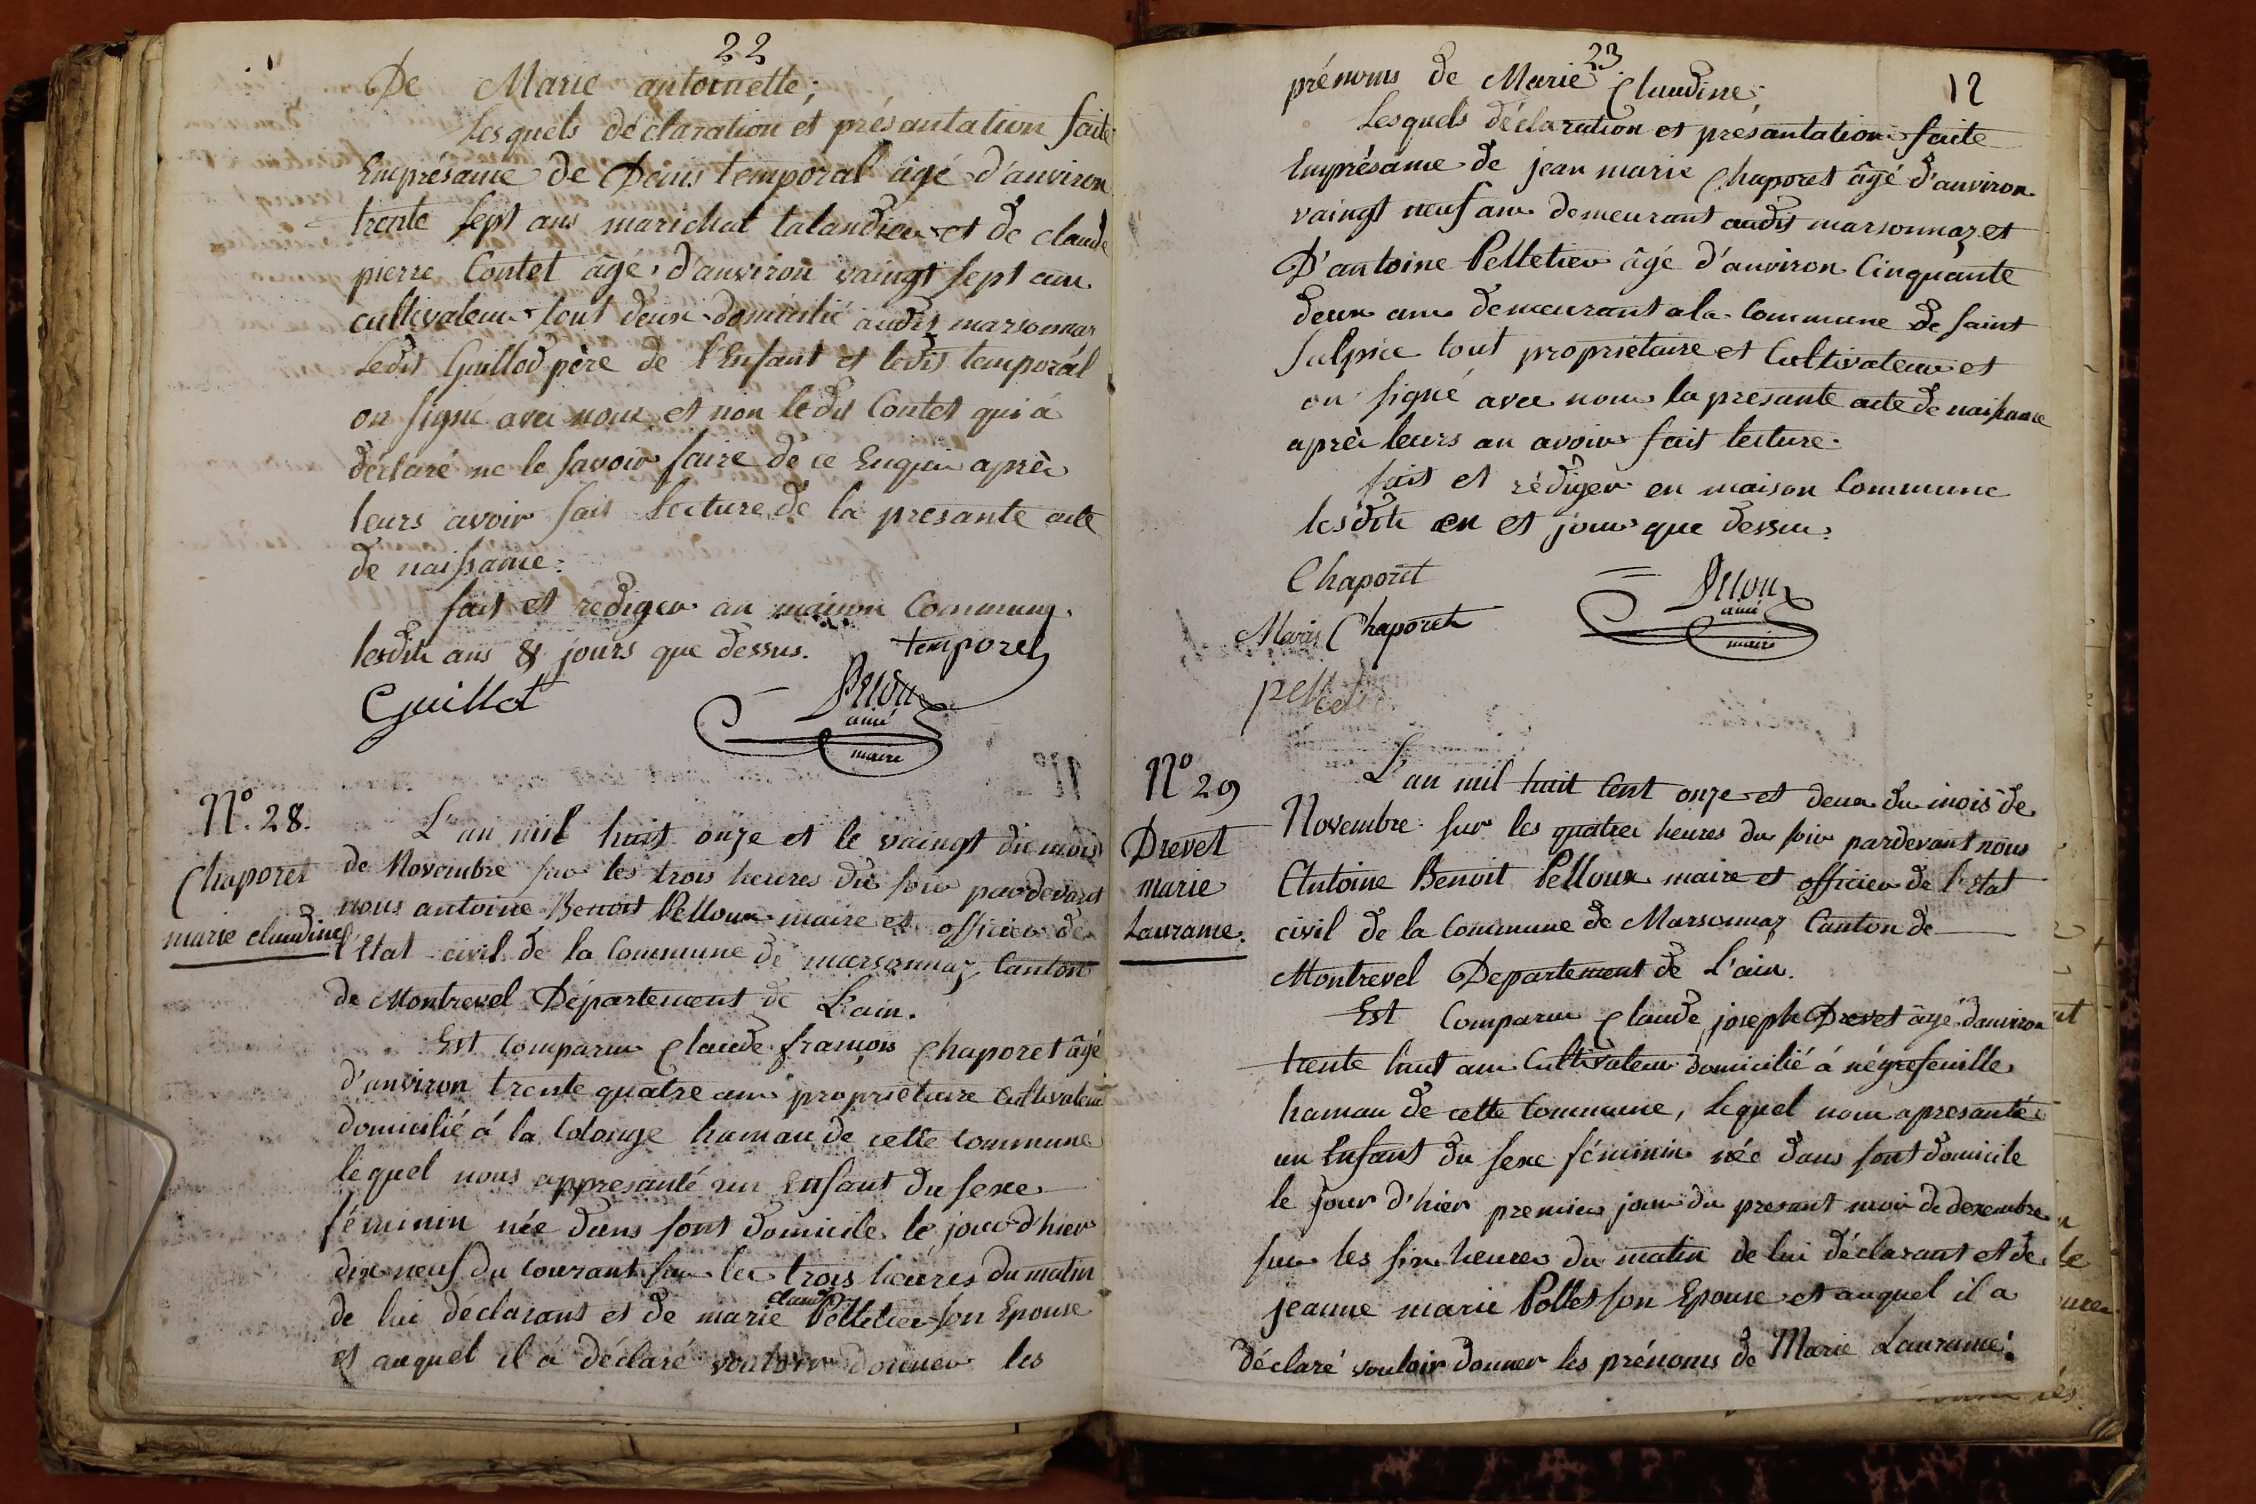 22
De Marie antoinette;
Lesquels déclaration et présantation faite
Emprésance de Denis temporal âgé d'anviron
trente sept ans marichal talandier et de claude
pierre Contet âgé d'anviron vaingt sept ans
cultivateur tout deux domicilié audit marsonnaz
Ledit Guillod père de l'Enfant et ledit temporal
on signé avec nous et non ledit Contet qui á
déclaré ne le savoir faire de ce Enquis après
leurs avoir fait Lecture de la presante acte
de naissance.
fait et rediger an maison Commune
lesdits ans & jours que dessus.
temporel
Guillot
Pelloux
ainé
maire
N°. 28.
Chaporet
marie claudine
L'an mil huit onze et le vaingt du mois
de Novembre sur les trois heures du soir pardevant
nous antoine Benoit Pelloux maire et officier de
l'Etat civil de la Commune de marsonnaz Canton
de Montrevel Département de L'ain.
Est Comparu Claude françois Chaporet âgé
d'anviron trente quatre ans propriétaire Cultivateur
domicilié á la Colonge hamau de cette Commune
lequel nous appresanté un Enfant du sexe
féminin née dans sont domicile le jour d'hier
dix neuf du courant sur les trois heures du matin
de lui déclarant et de marie claudine Pelletier son Epouse
et auquel il á déclaré vouloir donner les
23
12
prénoms de Marie Claudine;
Lesquels déclaration et présantation faite
Emprésance de jean marie Chaporet âgé d'anviron
vaingt neuf ans demeurant audit marsonnaz et
D'antoine Pelletier âgé d'anviron Cinquante
deux ans demeurant a la Commune de saint
Sulpice tout propriétaire et Cultivateur et
on signé avec nous la presante acte de naissance
après leurs an avoir fait lecture.
fait et rédiger en maison Commune
lesdits an et jour que dessus.
Chaporet
Marie Chaporet
Pelloux
ainé
maire
N° 29
Drevet
marie
Lauranne.
L'an mil huit Cent onze et deux du mois de
Novembre sur les quatre heures du soir pardevant nous
Antoine Benoit Pelloux maire et officier de l'Etat
civil de la Commune de Marsonnaz Canton de
Montrevel Departement de L'ain.
Est Comparu Claude joseph Drevet âgé d'anviron
trente huit ans Cultivateur domicilié á négrefeuille
hamau de cette Commune, lequel nous apresanté
un Enfant du sexe féminin née dans sont domicile
le jour d'hier premier jour du presant mois de dexembre
sur les six heures du matin de lui déclarant et de
jeanne marie Pollet son Epouse et auquel il a
déclaré vouloir donner les prénoms de Marie Lauranne.